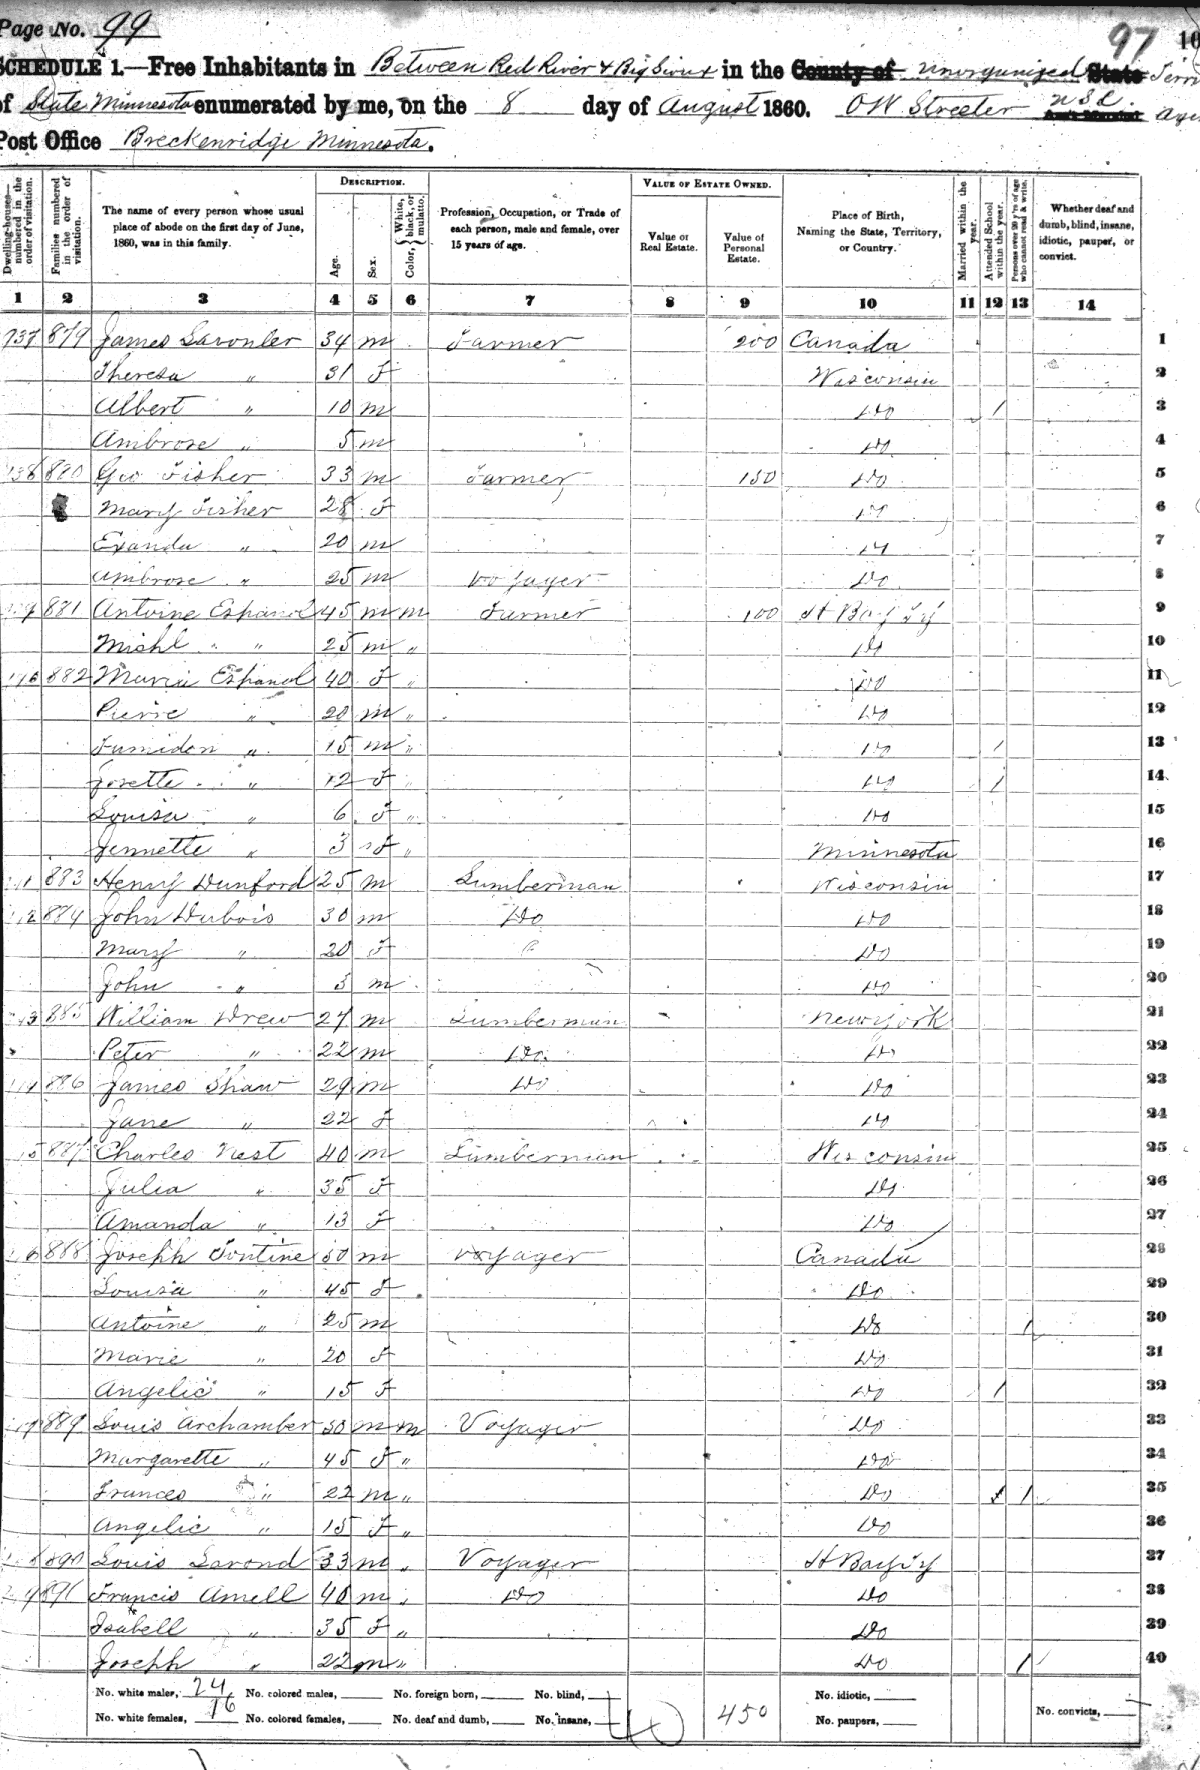 Page No. 99
97
SCHEDULE 1.—Free Inhabitants in Between Red River & Big Sioux in the County of unorganized State Terri
of State Minnesota enumerated by me, on the 8 day of August 1860. OW Streeter U.S.C.
Post Office Breckenridge Minnesota.
Dwelling-houses—numbered in the order of visitation.
Families numbered in the order of visitation.
The name of every person whose usual place of abode on the first day of June, 1860, was in this family.
DESCRIPTION.
Age.
Sex.
Color, White, black, or mulatto.
Profession, Occupation, or Trade of each person, male and female, over 15 years of age.
VALUE OF ESTATE OWNED.
Value of Real Estate.
Value of Personal Estate.
Place of Birth, Naming the State, Territory, or Country.
Married within the year.
Attended School within the year.
Persons over 20 y'rs of age who cannot read & write.
Whether deaf and dumb, blind, insane, idiotic, pauper, or convict.
1 2 3 4 5 6 7 8 9 10 11 12 13 14
737 879 James Laronler 34 m Farmer 200 Canada 1
Theresa " 31 F Wisconsin 2
Albert " 10 m Do / 3
Ambrose " 5 m Do 4
738 880 Geo Fisher 33 m Farmer 150 Do 5
Mary Fisher 28 F Do 6
Exanda " 20 m Do 7
Ambrose " 25 m Voyager Do 8
881 Antoine Espanol 45 m m Farmer 100 H Bay Ty 9
Mishl " 25 m " Do 10
882 Maria Espanol 40 F " Do 11
Pierre " 20 m " Do 12
" 15 m " Do / 13
Josette " 12 F " Do / 14
Louisa " 6 F " Do 15
Jennette " 3 F " Minnesota 16
883 Henry Dunford 25 m Lumberman Wisconsin 17
884 John Dubois 30 m Do Do 18
Mary " 20 F Do 19
John " 3 m Do 20
885 William Drew 27 m Lumberman New York 21
Peter " 22 m Do Do 22
886 James Shaw 29 m Do Do 23
Jane " 22 F Do 24
887 Charles Nest 40 m Lumberman Wisconsin 25
Julia " 35 F Do 26
Amanda " 13 F Do 27
888 Joseph Fontine 50 m Voyager Canada 28
Louisa " 45 F Do 29
Antoine " 25 m Do / 30
Marie " 20 F Do 31
Angelic " 15 F Do / 32
889 Louis Archamber 50 m m Voyager Do 33
Margarette " 45 F " Do 34
Frances " 22 m " Do / / 35
Angelic " 15 F " Do 36
890 Louis Larond 33 m " Voyager H Bay Ty 37
891 Francis Amell 40 m " Do Do 38
Isabell " 35 F " Do 39
Joseph " 22 m " Do / 40
No. white males, 24 No. colored males, No. foreign born, No. blind, No. idiotic,
No. white females, 16 No. colored females, No. deaf and dumb, No. insane, 40 450 No. paupers, No. convicts,